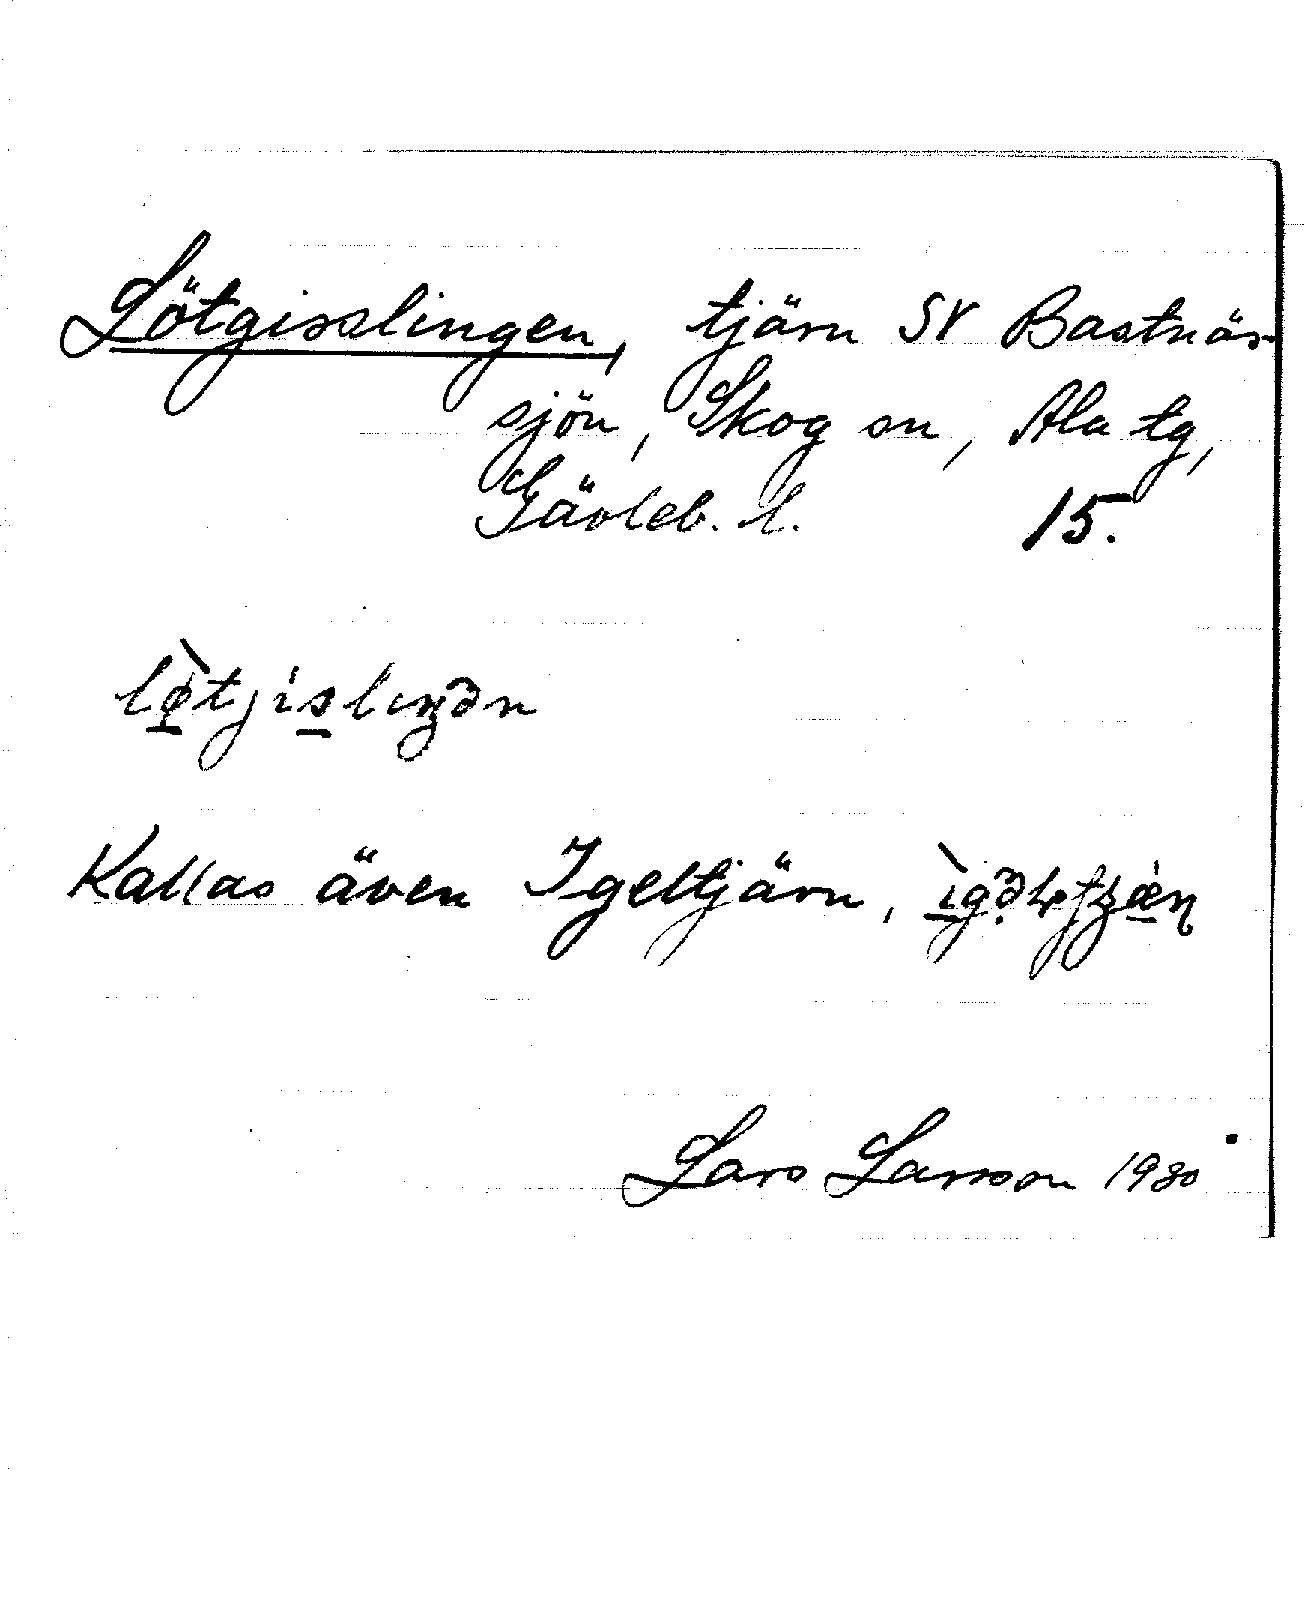 Lötgisslingen, tjärn SV Bastnäs-
sjön, Skog sn, Ala tg,
Gävleb. l. 15.
Kallas även Igeltjärn,
Lars Larsson 1930